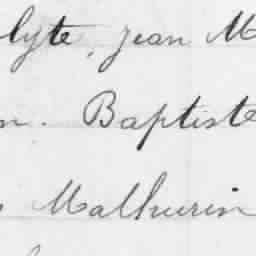 lyte, Jean M
n. Baptiste
s Mathurin